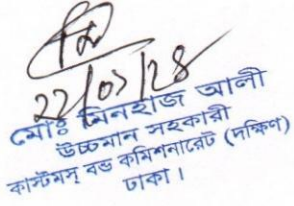 ২২/০১/২৪
মোঃ মিনহাজ আলী
উচ্চমান সহকারী
কাস্টমস্ বন্ড কমিশনারেট (দক্ষিণ)
ঢাকা।